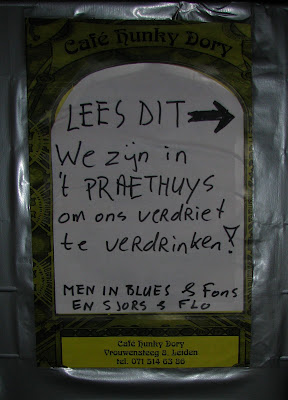 Café Hunky Dory
LEES DIT →
We zijn in
't PRAETHUYS
om ons verdriet
te verdrinken!
MEN IN BLUES & Fons
EN SJORS & FLO
Café Hunky Dory
Vrouwensteeg 8, Leiden
tel. 071 514 63 86